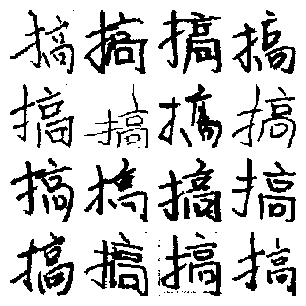 搞搞搞搞
搞搞搞搞
搞搞搞搞
搞搞搞搞